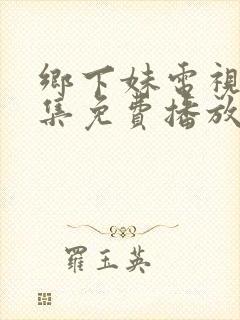 鄉下妹電視
集免費播放
羅玉英